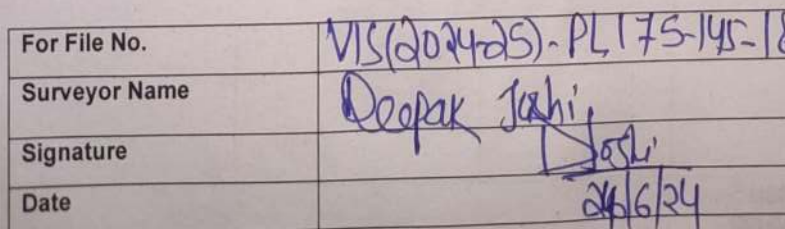 For File No. VIS(2024-25)-PL175-145-18
Surveyor Name Deepak Joshi
Signature DJoshi
Date 26/6/24